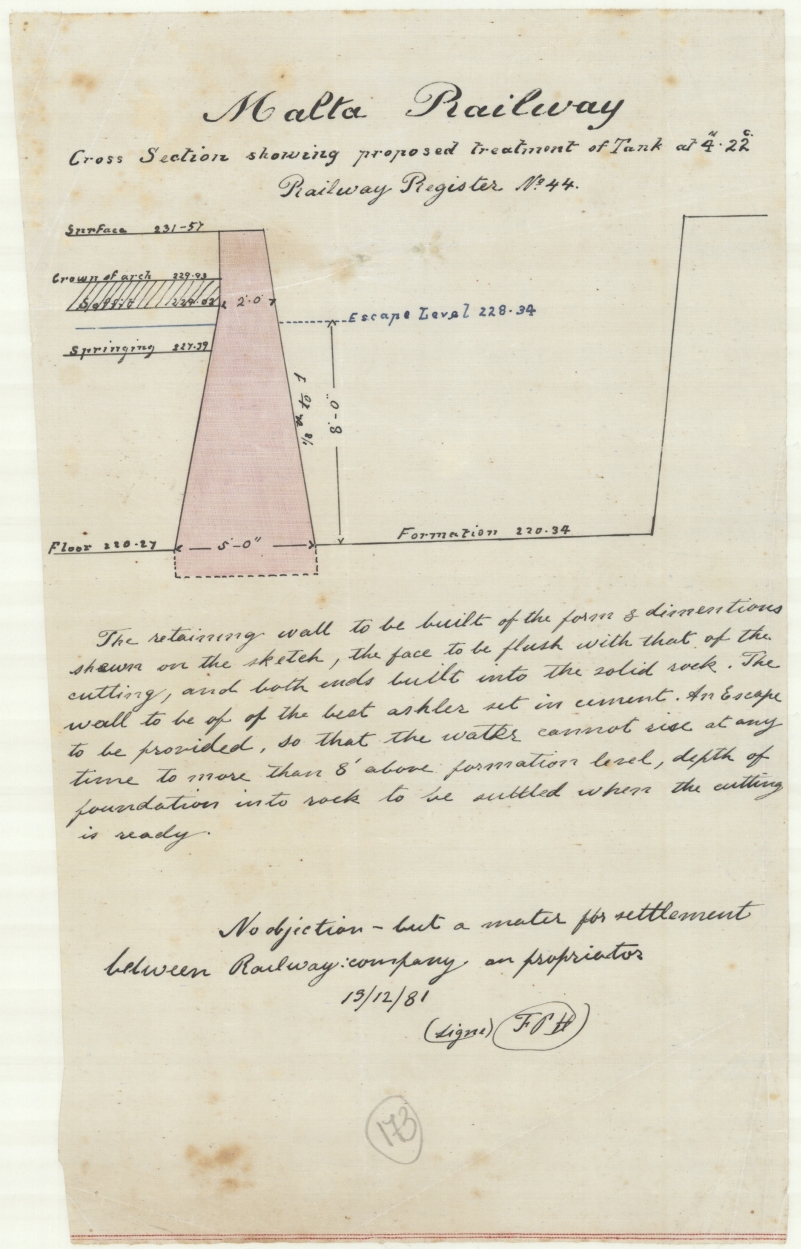 Malta Railway
Cross Section showing proposed treatment of Tank at 4.22
Railway Register No 44.
Surface 231-57
Crown of arch 229.93
Soffit
2'.0"
Escape Level 228.34
Springing 227.39
1/8 th to 1
8'-0"
Formation 220.34
Floor 220.27
5'-0"
The retaining wall to be built of the form & dimentions
shewn on the sketch, the face to be flush with that of the
cutting, and both ends built into the solid rock. The
wall to be of of the best ashler set in cement. An Escape
to be provided, so that the water cannot rise at any
time to more than 8' above formation level, depth of
foundation into rock to be settled when the cutting
is ready.
No objection - but a mater for settlement
between Railway company an propriator
13/12/81
(signe) FPH
173